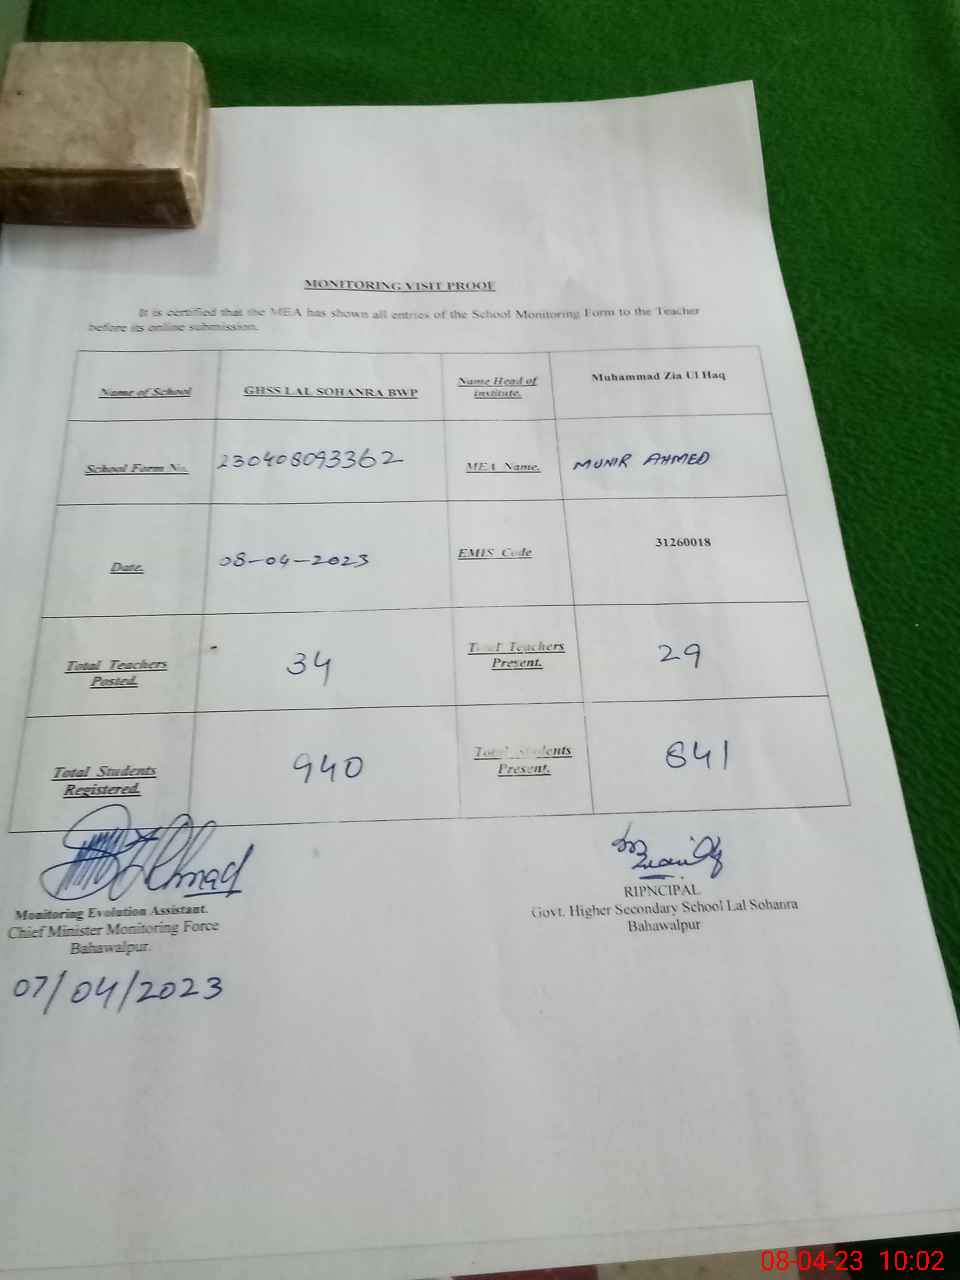 MONITORING VISIT PROOF
It is certified that the MEA has shown all entries of the School Monitoring Form to the Teacher
before its online submission.
Name of School
GHSS LAL SOHANRA BWP
Name Head of
institute.
Muhammad Zia Ul Haq
School Form No.
230408093362
MEA Name.
MUNIR AHMED
Date.
08-04-2023
EMIS Code
31260018
Total Teachers
Posted.
34
Total Teachers
Present.
29
Total Students
Registered.
940
Total Students
Present.
841
Ahmad
Monitoring Evolution Assistant.
Chief Minister Monitoring Force
Bahawalpur.
07/04/2023
RIPNCIPAL
Govt. Higher Secondary School Lal Sohanra
Bahawalpur
08-04-23 10:02